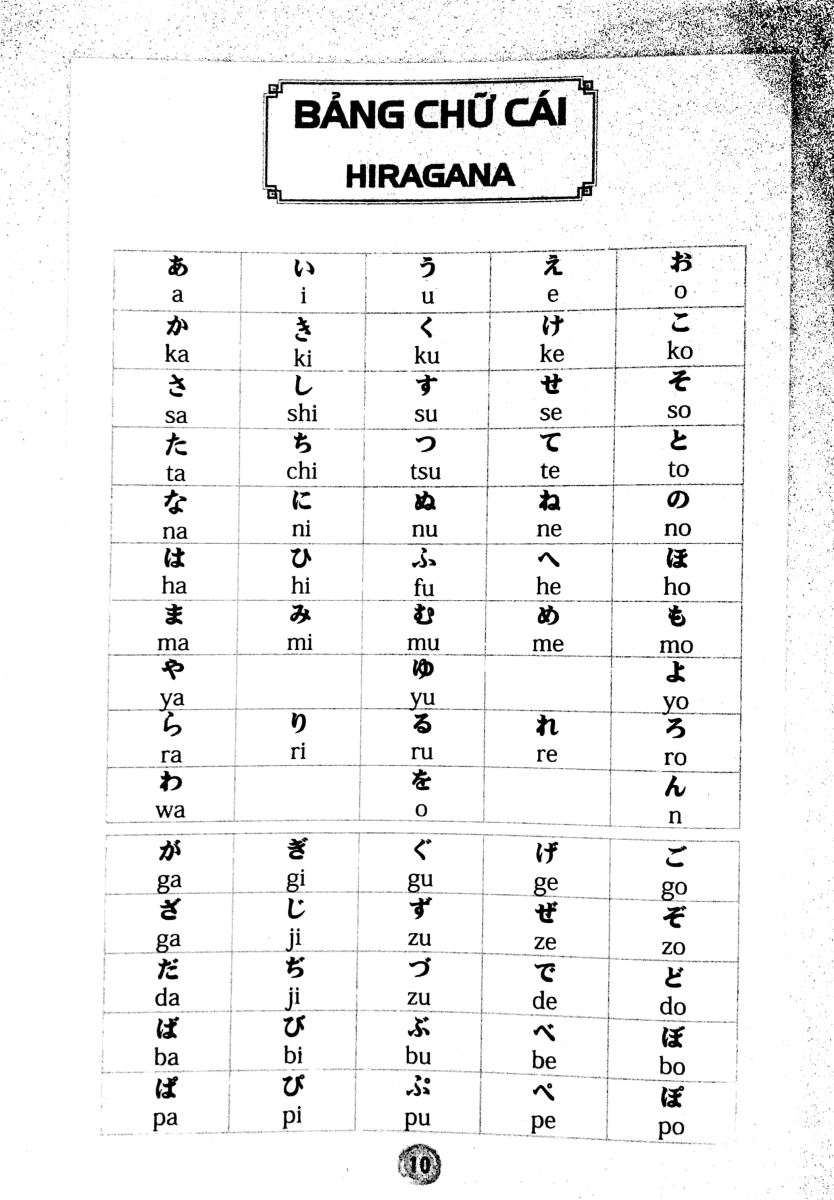 BẢNG CHỮ CÁI
HIRAGANA
あ い う え お
a i u e o
か き く け こ
ka ki ku ke ko
さ し す せ そ
sa shi su se so
た ち つ て と
ta chi tsu te to
な に ぬ ね の
na ni nu ne no
は ひ ふ へ ほ
ha hi fu he ho
ま み む め も
ma mi mu me mo
や ゆ よ
ya yu yo
ら り る れ ろ
ra ri ru re ro
わ を ん
wa o n
が ぎ ぐ げ ご
ga gi gu ge go
ざ じ ず ぜ ぞ
ga ji zu ze zo
だ ぢ づ で ど
da ji zu de do
ば び ぶ べ ぼ
ba bi bu be bo
ぱ ぴ ぷ ぺ ぽ
pa pi pu pe po
10